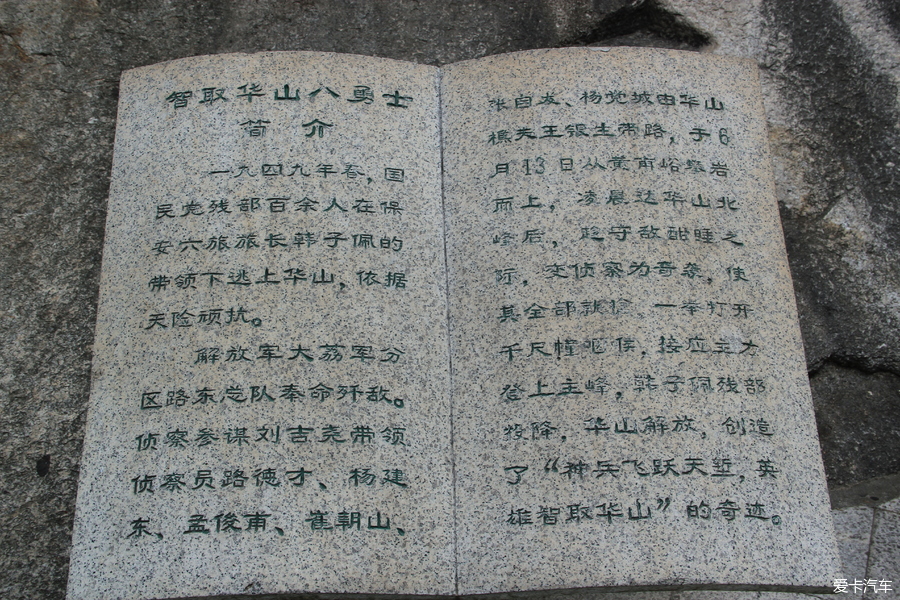 智取华山八勇士
简介
一九四九年春，国
民党残部百余人在保
安六旅旅长韩子佩的
带领下逃上华山，依据
天险顽抗。
解放军大荔军分
区路东总队奉命歼敌。
侦察参谋刘吉尧带领
侦察员路德才、杨建
东、孟俊甫、崔朝山、
张自发、杨党城由华山
樵夫王银生带路，于6
月13日从黄甫峪攀岩
而上，凌晨达华山北
峰后，趁守敌酣睡之
际，变侦察为奇袭，使
其全部就俘，一举打开
千尺幢咽喉，接应主力
登上主峰，韩子佩残部
投降，华山解放，创造
了“神兵飞跃天堑，英
雄智取华山”的奇迹。
爱卡汽车